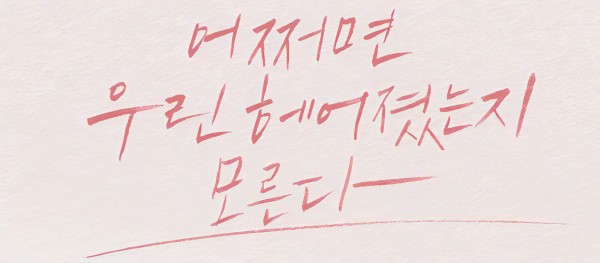 어쩌면
우린 헤어졌는지
모른다